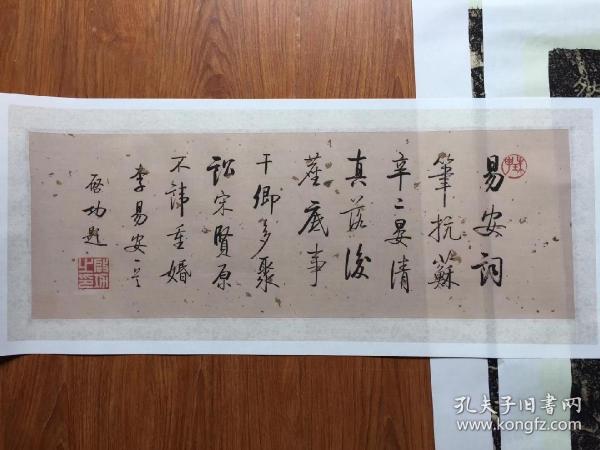 易安詞
筆抗蘇
辛二晏清
真落後
塵底事
干卿多聚
訟宋賢原
不諱重婚
李易安一首
啓功題
孔夫子旧书网
www.kongfz.com